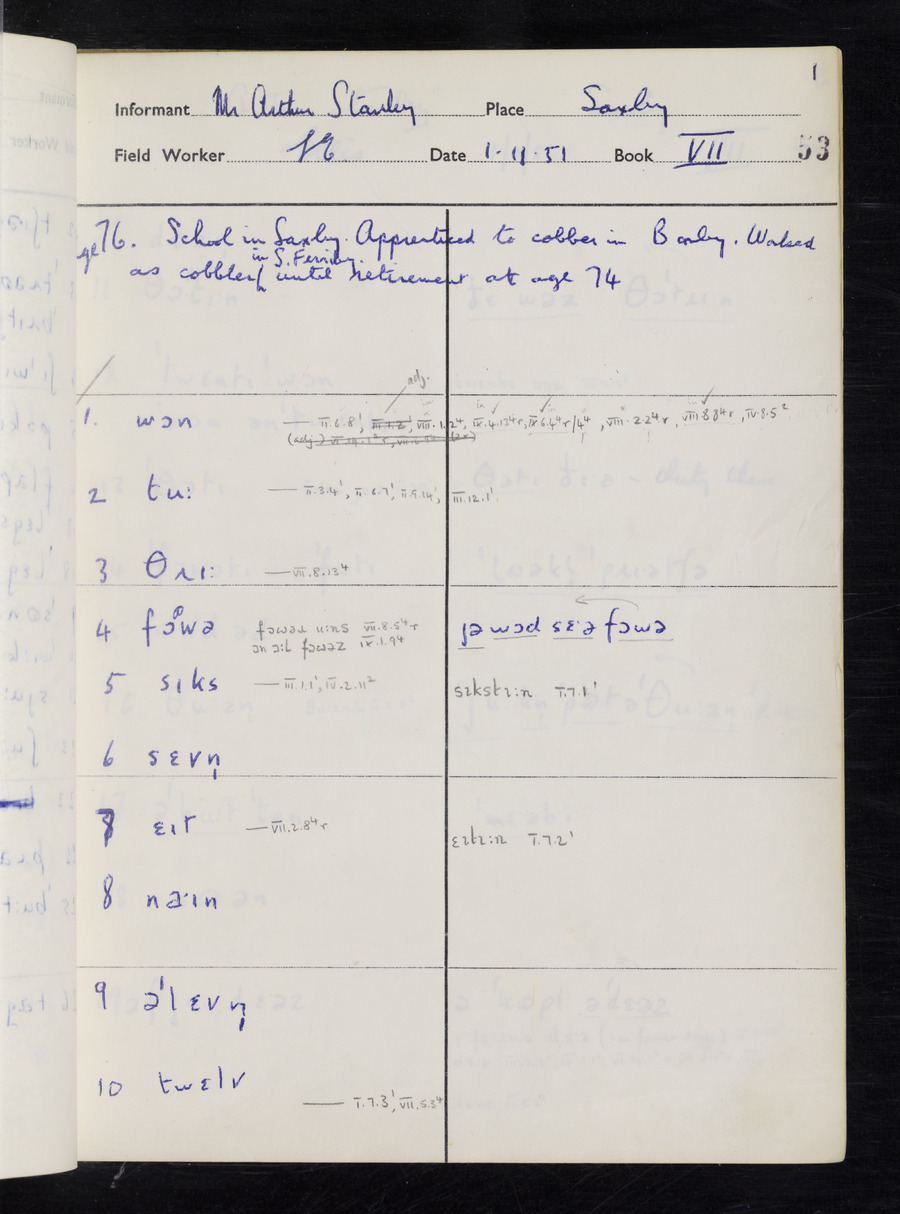 1
Informant Mr Arthur Stanley Place Saxby
Field Worker Date 1·11·51 Book VII 53
age 76. School in Saxby. Apprenticed to cobber in Worked
in S. Ferriby.
as cobbler until retirement at age 74
adj.
1. wɔn — II.6.8¹, III.1.2¹, VIII.1.2⁴, IX.4.13⁴r, IX 6.4⁴r/4⁴, VIII.2.2⁴r, VII 8.8⁴r, IV.8.5²
2 tu: — II.3.4¹, II.6.7¹, II.9.14¹, III.12.1¹
3 θɹɪ: — VII.8.13⁴
4 fɔwə fɔwəɹ u:ns VII.8.5⁴r jə wɔd sɛ·ə fɔwə
ɔn ɔ:l fɔwəz IX.1.9⁴
5 sɪks — III.1.1¹, IV.2.11² sɪkstɪ:n I.7.1¹
6 sɛvn̩
7 ɛɪt — VII.2.8⁴r ɛɪtɪ:n I.7.2¹
8 na·ɪn
9 ə'lɛvn̩
10 twɛlv
— I.7.3¹, VII.5.3⁴